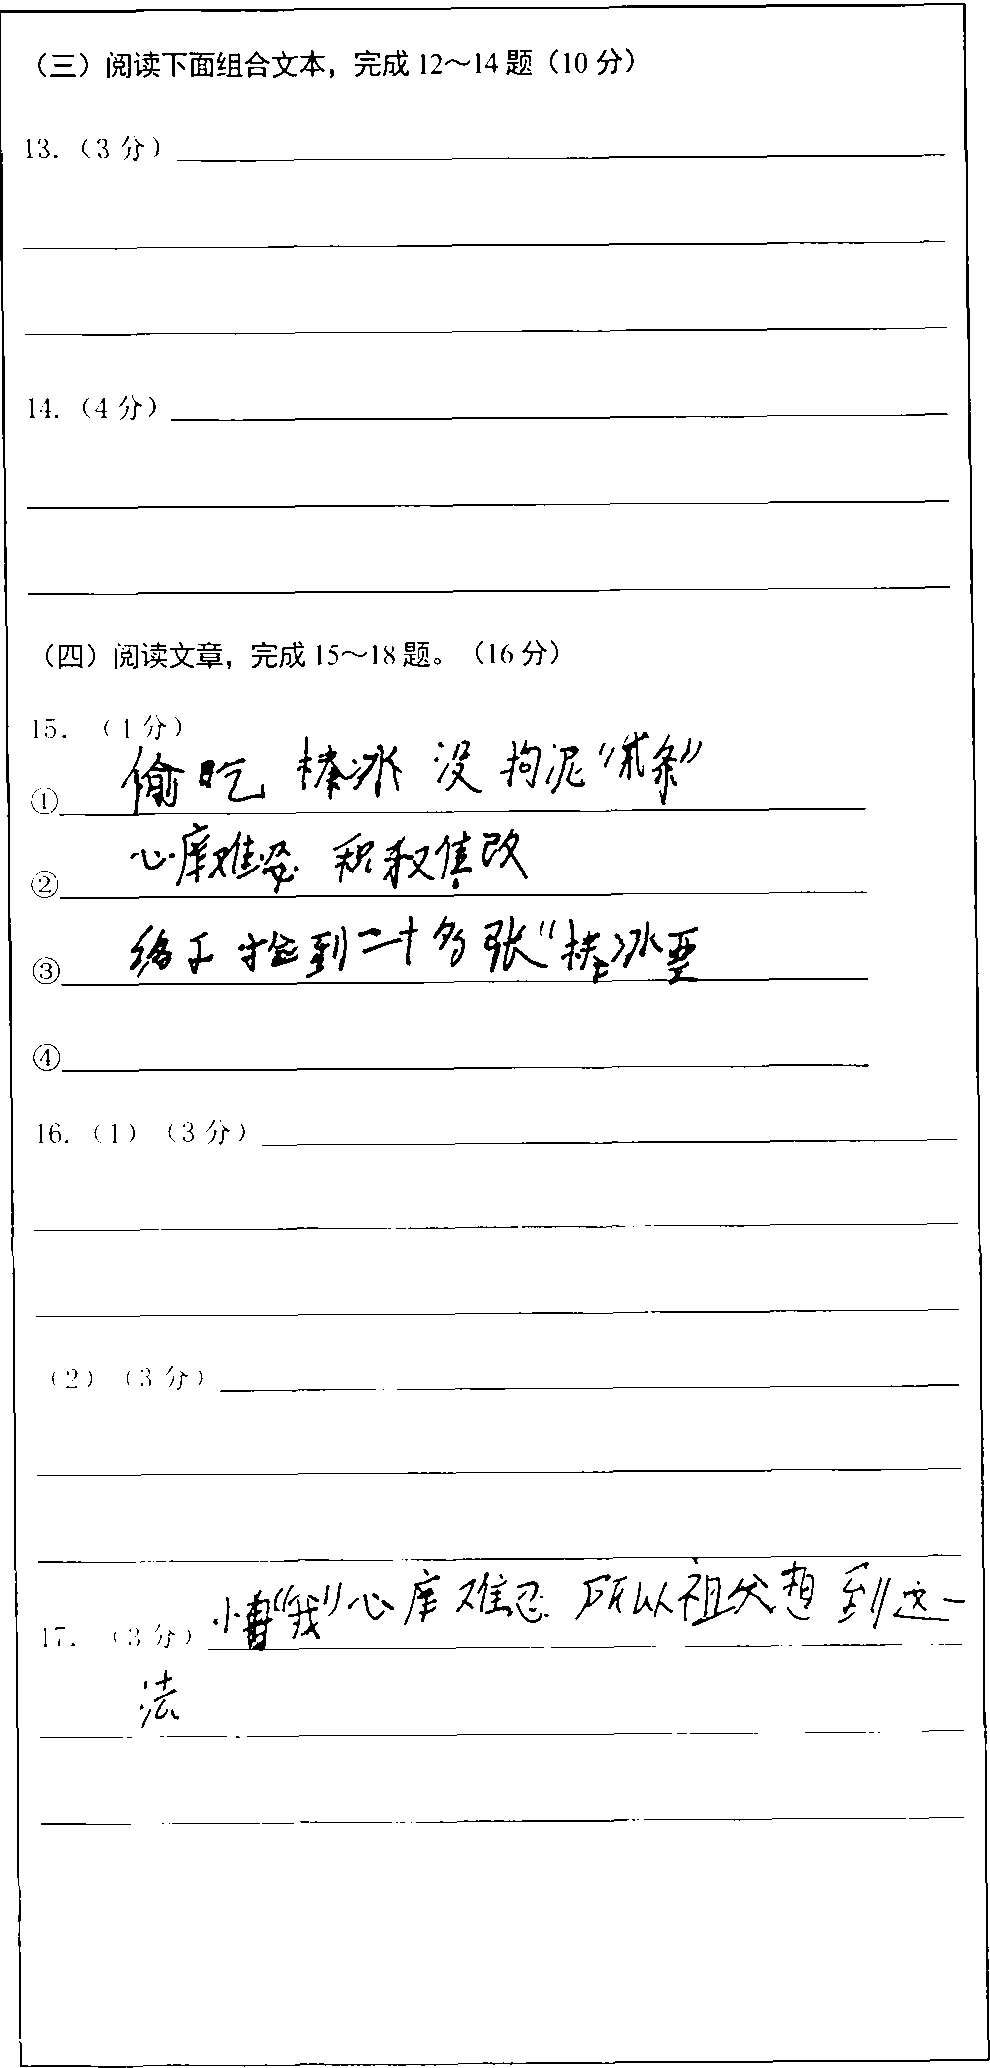 （三）阅读下面组合文本，完成12～14题（10分）
13.（3分）
14.（4分）
（四）阅读文章，完成15～18题。（16分）
15.（1分）
① 偷吃 棒冰 没 拘泥“戒条”
② 心痒难忍 积极
③ 终于 捡到二十多张“棒冰
④
16.（1）（3分）
（2）（3分）
17.（3分）“我”心痒难忍 所以祖父想到这一
法